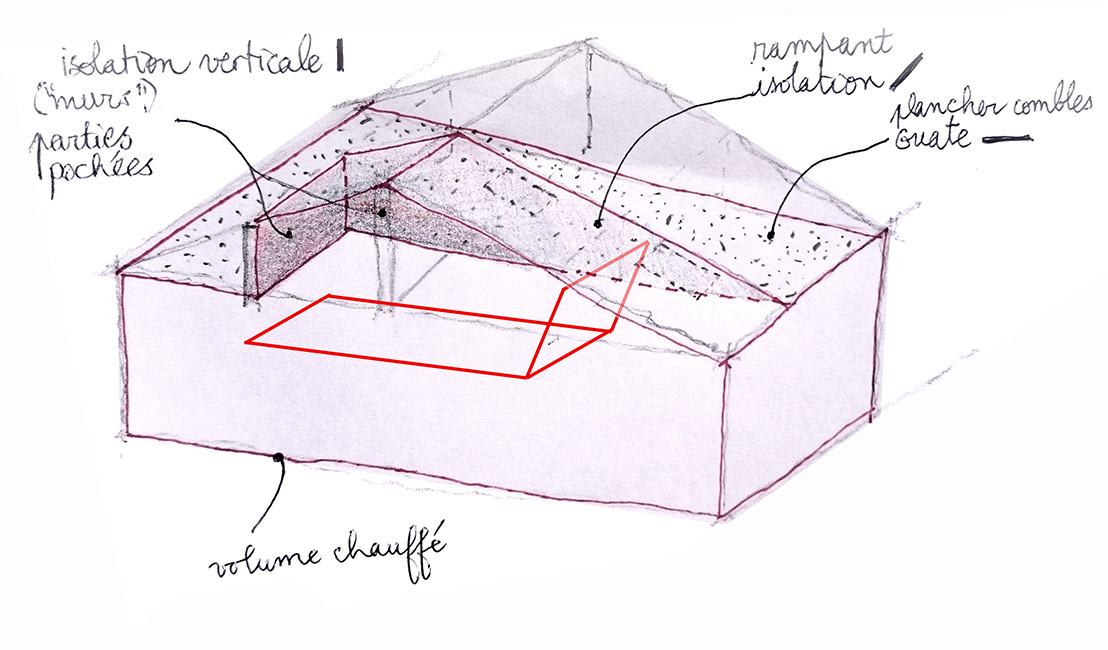 isolation verticale
("murs")
parties
pochées
rampant
isolation
plancher combles
ouate
volume chauffé